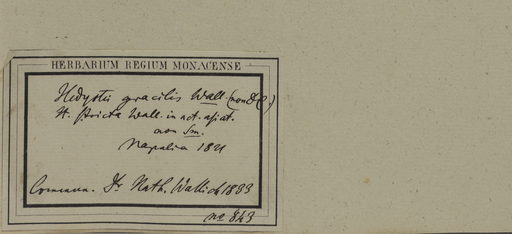 HERBARIUM REGIUM MONACENSE
Hedyotis gracilis Wall. (non DC)
H. stricta Wall. in act. asiat.
non Sm.
Napalia 1821
Commun. Dr. Nath. Wallich 1833
no 843